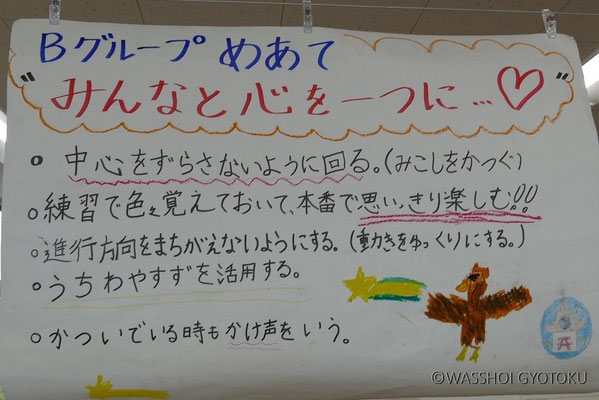 Bグループ めあて
"みんなと心を一つに…♡"
○ 中心をずらさないように回る。(みこしをかつぐ)
○ 練習で色々覚えておいて、本番で思いっきり楽しむ!!
○ 進行方向をまちがえないようにする。(動きをゆっくりにする。)
○ うちわやすずを活用する。
○ かついでいる時もかけ声をいう。
©WASSHOI GYOTOKU